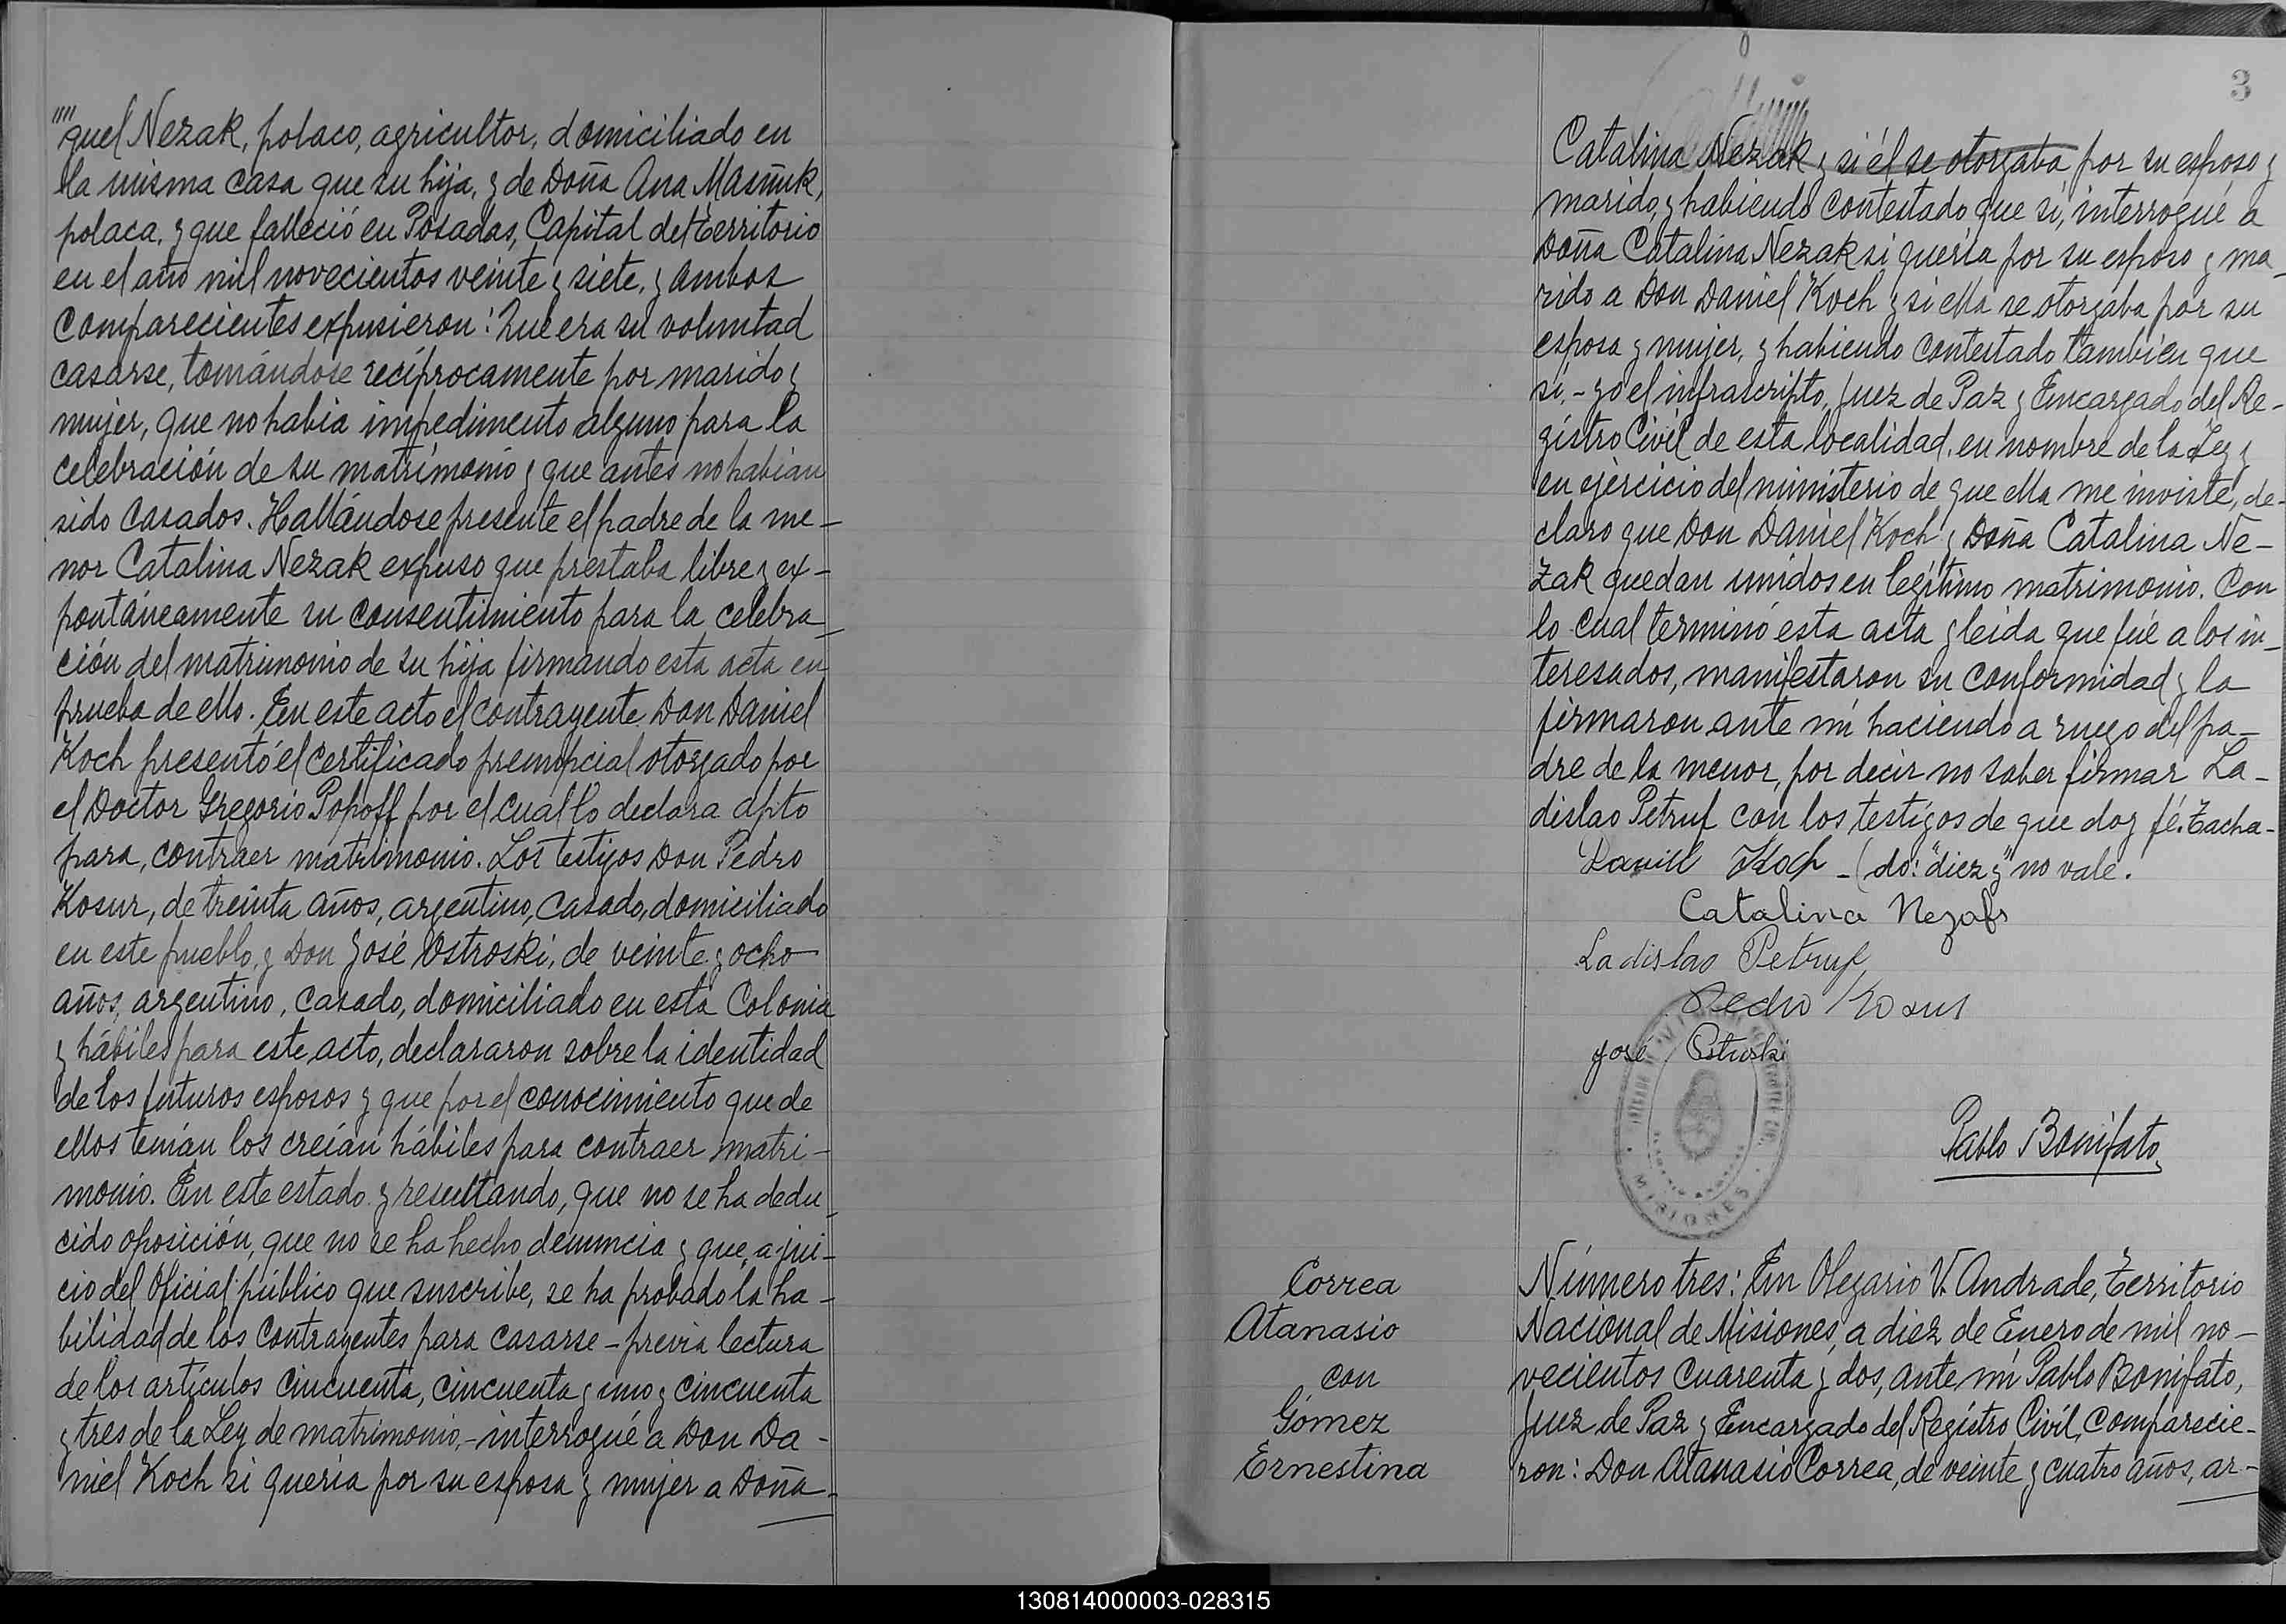 ""quel Nezak, polaco, agricultor, domiciliado en
la misma casa que su hija, y de Doña Ana Masñuk,
polaca, y que falleció en Posadas, Capital del Territorio
en el año mil novecientos veinte y siete, y ambos
comparecientes expusieron: Que era su voluntad
casarse, tomándose recíprocamente por marido y
mujer, que no habia impedimento alguno para la
celebración de su matrimonio y que antes no habian
sido casados. Hallándose presente el padre de la me-
nor Catalina Nezak expuso que prestaba libre y ex-
pontáneamente su consentimiento para la celebra-
ción del matrimonio de su hija firmando esta acta en
prueba de ello. En este acto el contrayente Don Daniel
Koch presentó el certificado prenupcial otorgado por
el Doctor Gregorio Popoff por el cual lo declara apto
para, contraer matrimonio. Los testigos Don Pedro
Kosur, de treinta años, argentino, casado, domiciliado
en este pueblo, y Don José Ostroski, de veinte y ocho
años, argentino, casado, domiciliado en esta Colonia
y hábiles para este acto, declararon sobre la identidad
de los futuros esposos y que por el conocimiento que de
ellos tenían los creían hábiles para contraer matri-
monio. En este estado y resultando, que no se ha dedu-
cido oposición, que no se ha hecho denuncia y que, a jui-
cio del Oficial público que suscribe, se ha probado la ha-
bilidad de los contrayentes para casarse - previa lectura
de los artículos cincuenta, cincuenta y uno y cincuenta
y tres de la Ley de matrimonio, - interrogué a Don Da-
niel Koch si queria por su esposa y mujer a Doña
3
Catalina Nezak y si él se otorgaba por su esposo y
marido, y habiendo contestado que sí, interrogué a
Doña Catalina Nezak si quería por su esposo y ma-
rido a Don Daniel Koch y si ella se otorgaba por su
esposa y mujer, y habiendo contestado también que
sí, - yo el infrascripto, Juez de Paz y Encargado del Re-
gistro Civil de esta localidad, en nombre de la Ley y
en ejercicio del ministerio de que ella me inviste, de-
claro que Don Daniel Koch y Doña Catalina Ne-
zak quedan unidos en legítimo matrimonio. Con
lo cual terminó esta acta y leída que fué a los in-
teresados, manifestaron su conformidad y la
firmaron ante mí haciendo a ruego del pa-
dre de la menor, por decir no saber firmar La-
dislao Petruf con los testigos de que doy fé. Tacha-
Daniel Koch - (do: "diez y" no vale.
Catalina Nezak
Ladislao Petruf
Pedro Kosur
José Osturski
MISIONES
Pablo Bonifato
Correa
Atanasio
con
Gómez
Ernestina
Número tres: En Olegario V. Andrade, Territorio
Nacional de Misiones, a diez de Enero de mil no-
vecientos cuarenta y dos, ante mí Pablo Bonifato,
Juez de Paz y Encargado del Registro Civil, comparecie-
ron: Don Atanasio Correa, de veinte y cuatro años, ar-
130814000003-028315